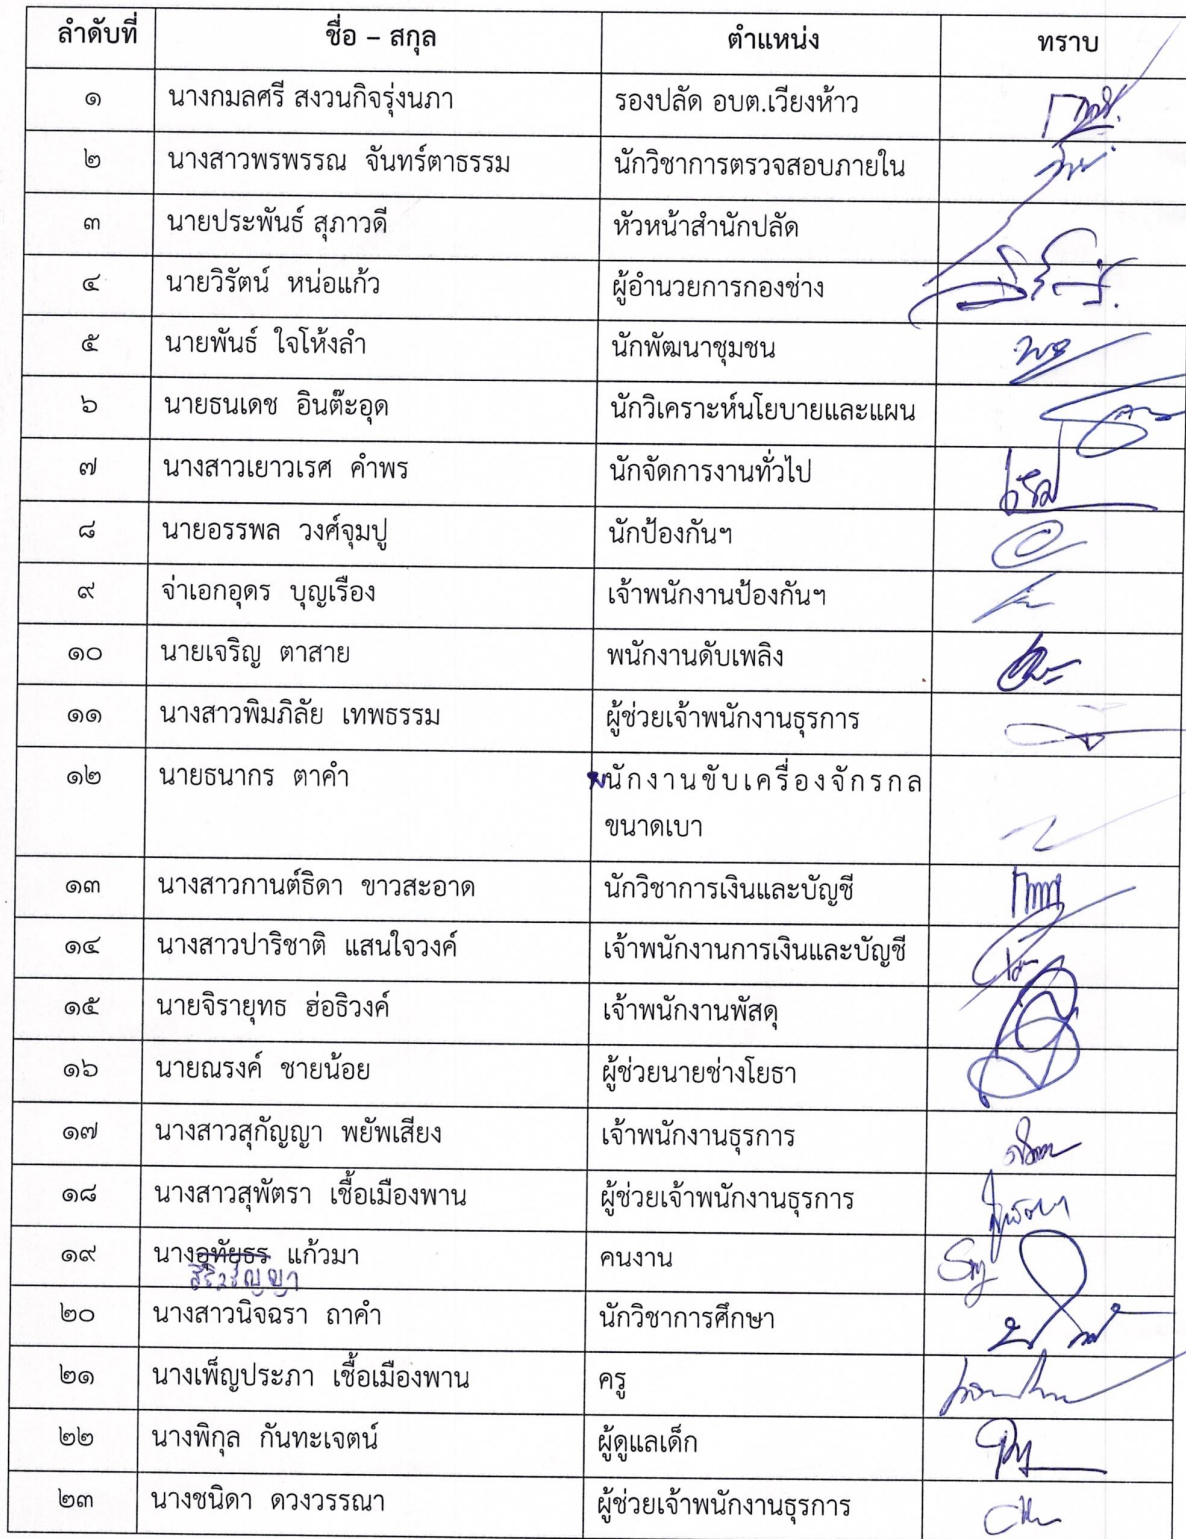 ลำดับที่ ชื่อ – สกุล ตำแหน่ง ทราบ
๑ นางกมลศรี สงวนกิจรุ่งนภา รองปลัด อบต.เวียงห้าว
๒ นางสาวพรพรรณ จันทร์ตาธรรม นักวิชาการตรวจสอบภายใน
๓ นายประพันธ์ สุภาวดี หัวหน้าสำนักปลัด
๔ นายวิรัตน์ หน่อแก้ว ผู้อำนวยการกองช่าง
๕ นายพันธ์ ใจโห้งลำ นักพัฒนาชุมชน
๖ นายธนเดช อินต๊ะอุด นักวิเคราะห์นโยบายและแผน
๗ นางสาวเยาวเรศ คำพร นักจัดการงานทั่วไป
๘ นายอรรพล วงศ์จุมปู นักป้องกันฯ
๙ จ่าเอกอุดร บุญเรือง เจ้าพนักงานป้องกันฯ
๑๐ นายเจริญ ตาสาย พนักงานดับเพลิง
๑๑ นางสาวพิมภิลัย เทพธรรม ผู้ช่วยเจ้าพนักงานธุรการ
๑๒ นายธนากร ตาคำ พนักงานขับเครื่องจักรกล
ขนาดเบา
๑๓ นางสาวกานต์ธิดา ขาวสะอาด นักวิชาการเงินและบัญชี
๑๔ นางสาวปาริชาติ แสนใจวงค์ เจ้าพนักงานการเงินและบัญชี
๑๕ นายจิรายุทธ ฮ่อธิวงค์ เจ้าพนักงานพัสดุ
๑๖ นายณรงค์ ชายน้อย ผู้ช่วยนายช่างโยธา
๑๗ นางสาวสุกัญญา พยัพเสียง เจ้าพนักงานธุรการ
๑๘ นางสาวสุพัตรา เชื้อเมืองพาน ผู้ช่วยเจ้าพนักงานธุรการ
๑๙ นางอุทัยธร แก้วมา คนงาน
๒๐ นางสาวนิจฉรา ถาคำ นักวิชาการศึกษา
๒๑ นางเพ็ญประภา เชื้อเมืองพาน ครู
๒๒ นางพิกุล กันทะเจตน์ ผู้ดูแลเด็ก
๒๓ นางชนิดา ดวงวรรณา ผู้ช่วยเจ้าพนักงานธุรการ